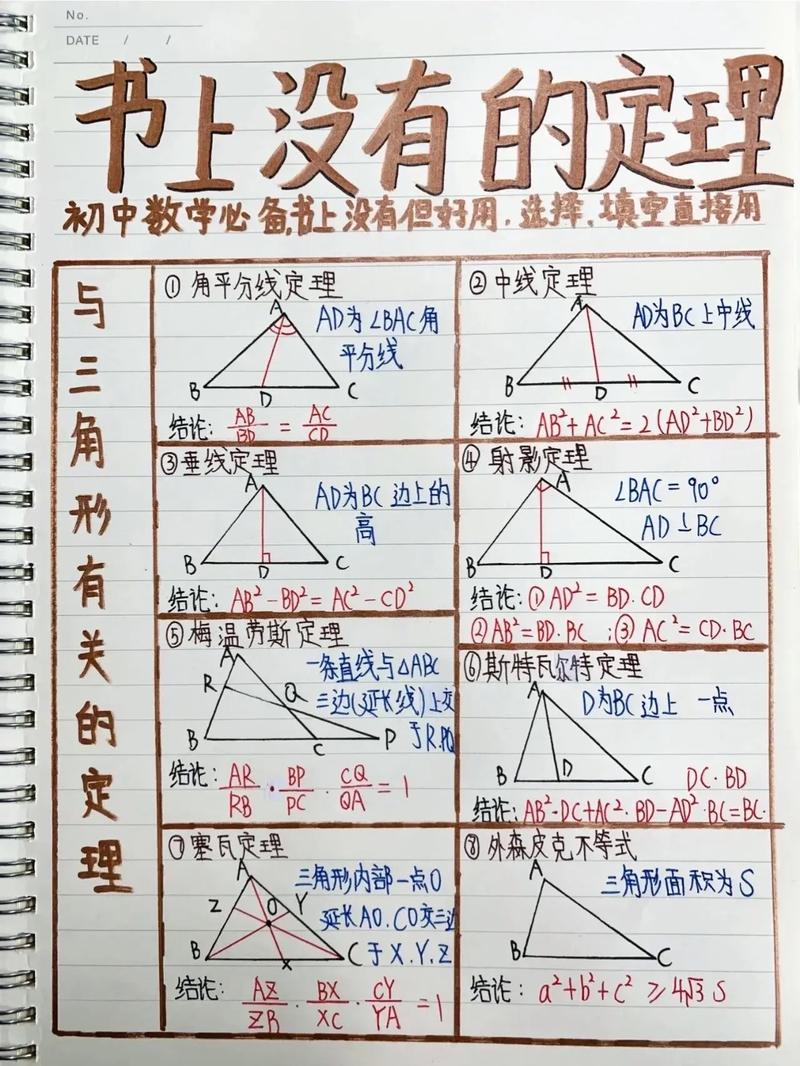 No.
DATE / /
书上没有的定理
初中数学必备,书上没有但好用.选择.填空直接用
与三角形有关的定理
① 角平分线定理
AD为∠BAC角
平分线
A
B
D
C
结论: AB/BD = AC/CD
② 中线定理
AD为BC上中线
A
B
D
C
结论: AB²+AC²=2(AD²+BD²)
③ 垂线定理
AD为BC边上的
高
A
B
D
C
结论: AB²-BD²=AC²-CD²
④ 射影定理
∠BAC=90°
AD⊥BC
A
B
D
C
结论:①AD²=BD·CD
②AB²=BD·BC ;③AC²=CD·BC
⑤ 梅涅劳斯定理
一条直线与△ABC
三边(延长线)上交
于R.PQ
A
R
Q
B
C
P
结论: AR/RB · BP/PC · CQ/QA = 1
⑥ 斯特瓦尔特定理
D为BC边上 一点
A
B
D
C
DC·BD
结论:AB²·DC+AC²·BD-AD²·BC=BC·
⑦ 塞瓦定理
三角形内部一点O
延长AO.CO交三边
于X.Y.Z
A
Z
O
Y
B
X
C
结论: AZ/ZB · BX/XC · CY/YA =1
⑧ 外森皮克不等式
三角形面积为S
A
B
C
结论: a²+b²+c² ≥4√3 S